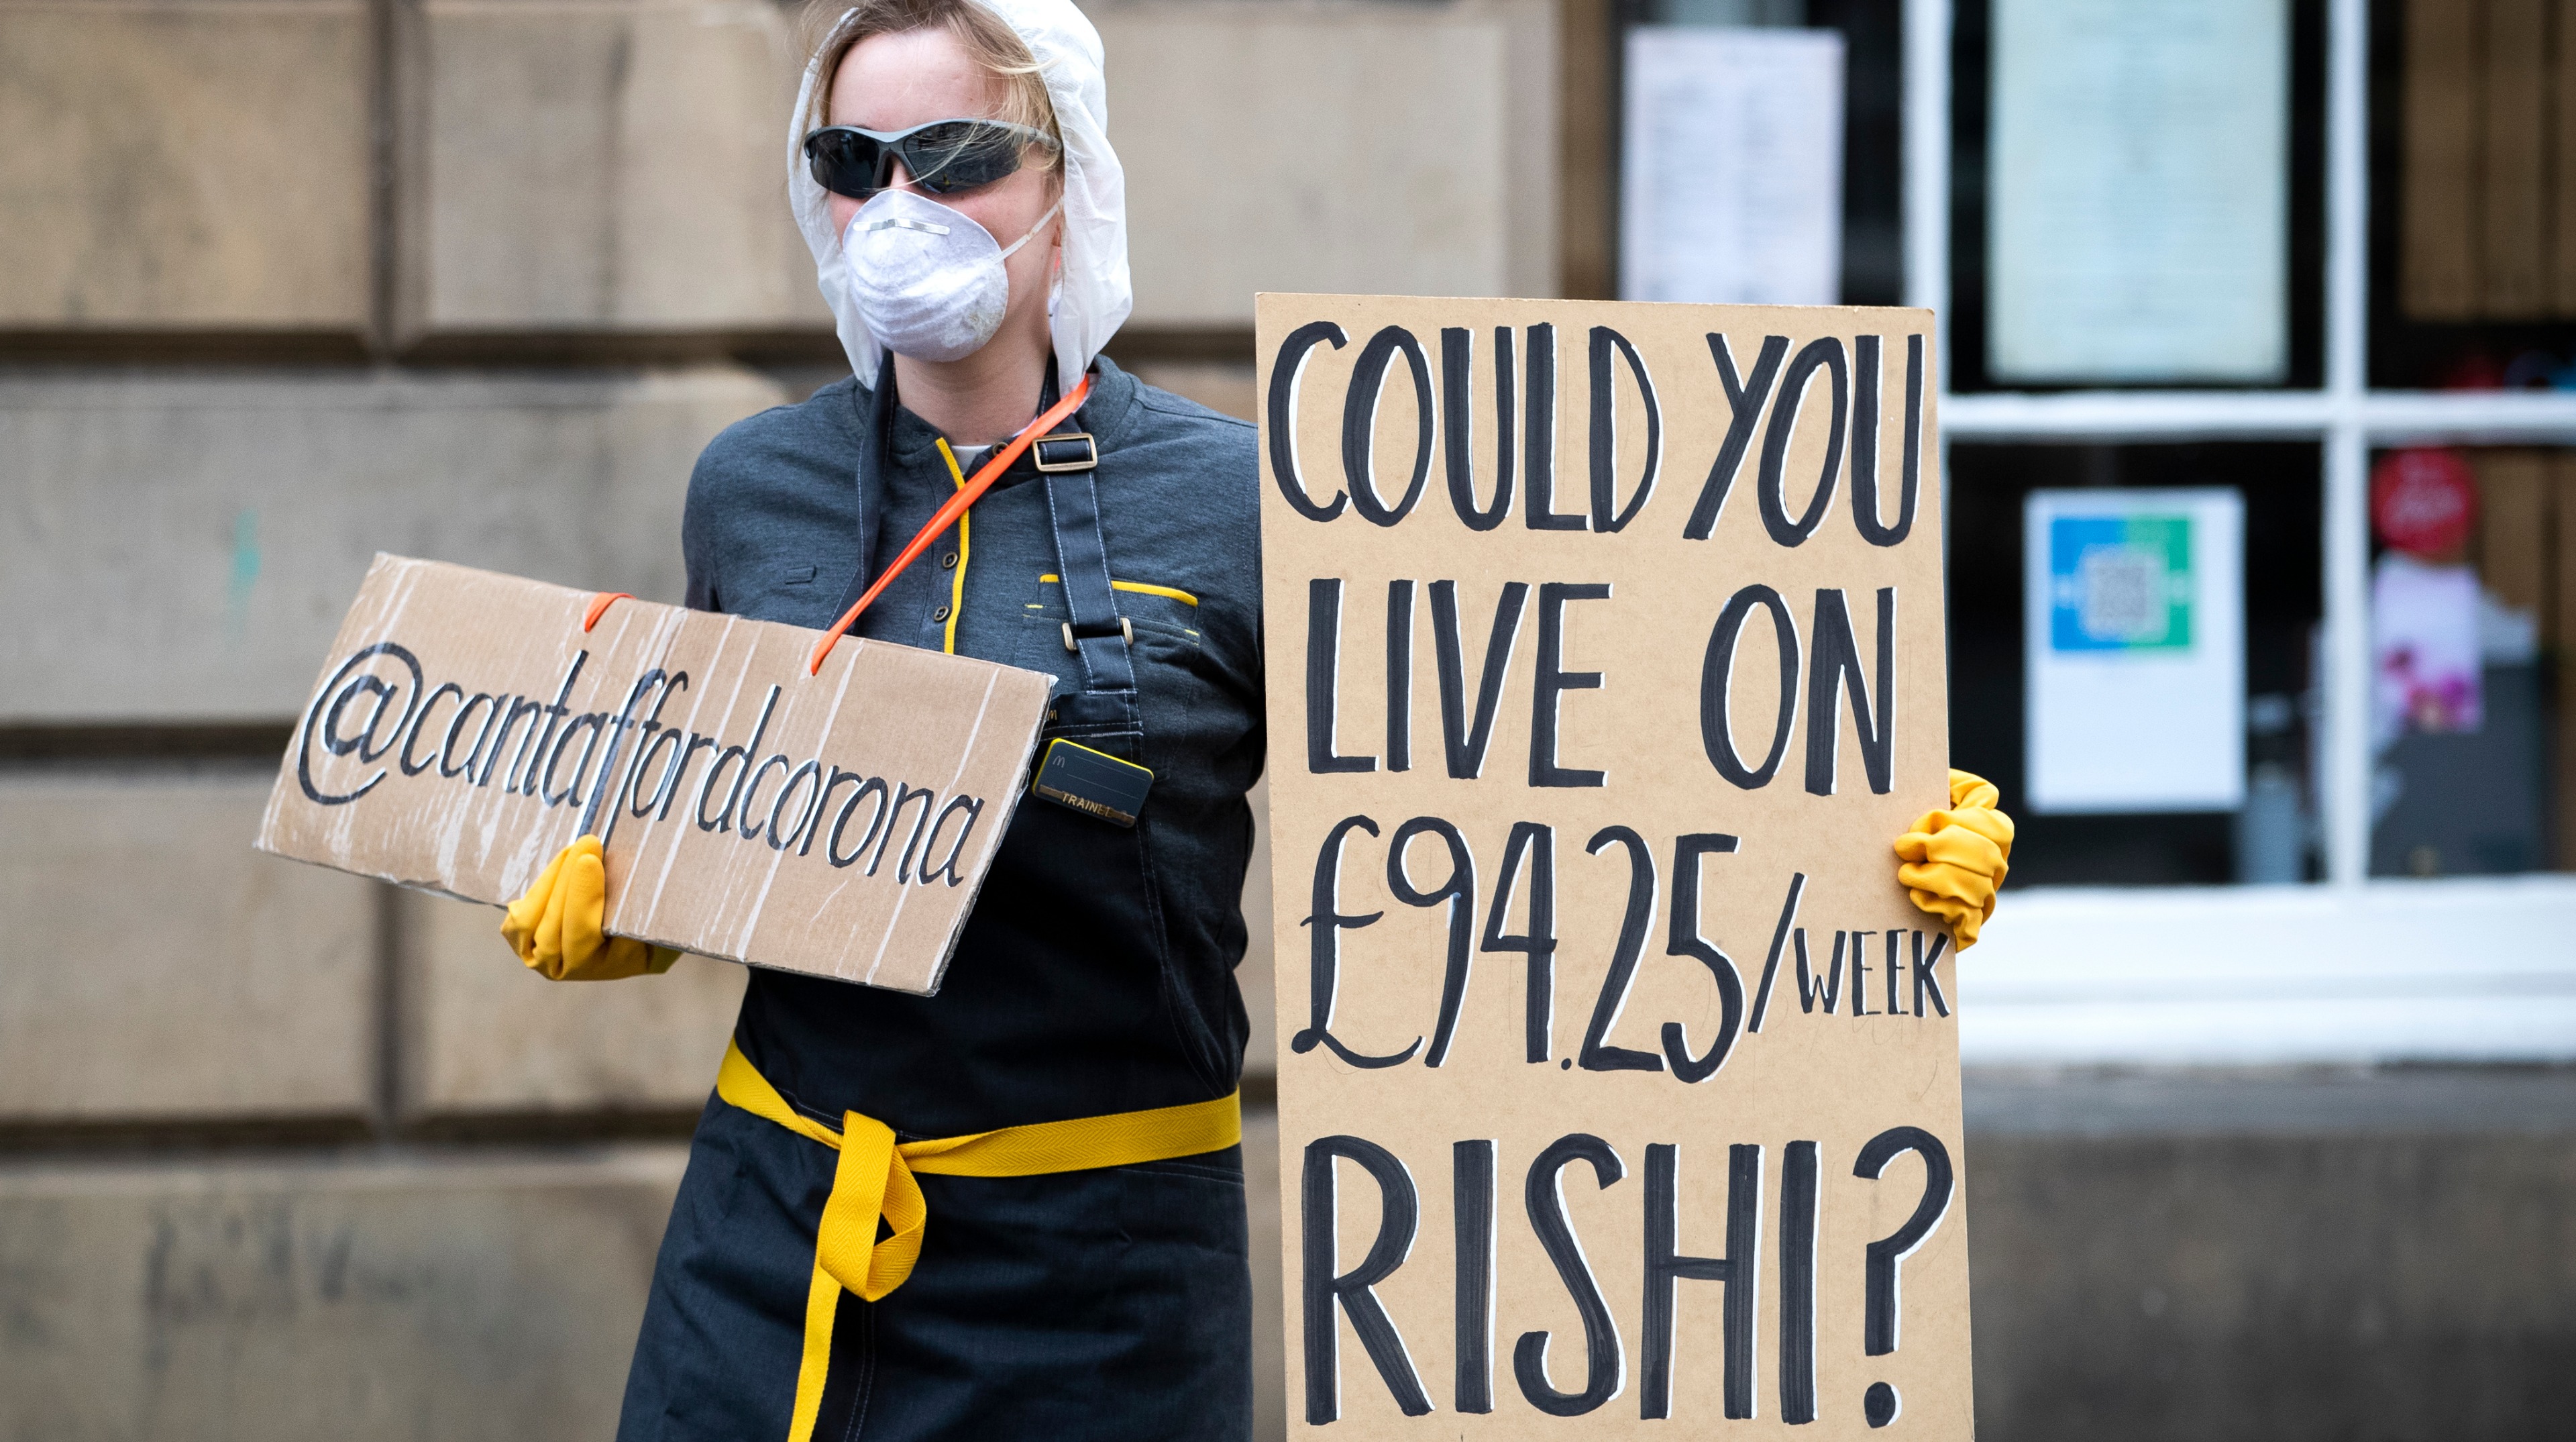 @cantaffordcorona
TRAINEE
COULD YOU
LIVE ON
£94.25/WEEK
RISHI?